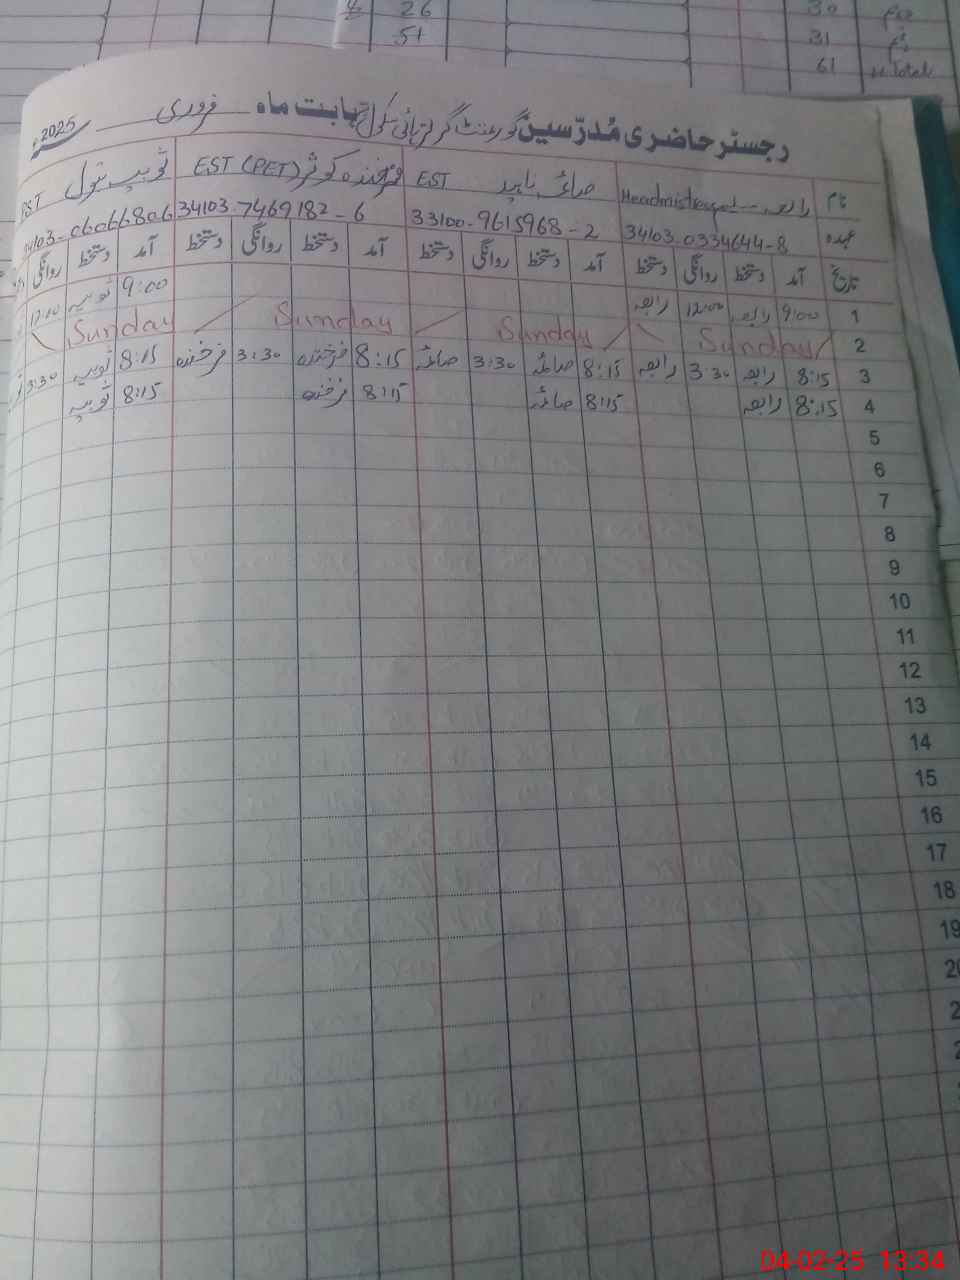 26
51
30
31
61 Total
رجسٹر حاضری مُدرّسین گورنمنٹ گرلز ہائی سکول بابت ماہ فروری 2025ء
نام رابعہ Headmistress صائمہ ناہید EST فرخندہ کوثر EST (PET) ثوبیہ بتول PST
عہدہ 34103-0334644-8 33100-9615968-2 34103-7469182-6 34103-0606680-6
تاریخ آمد دستخط روانگی دستخط آمد دستخط روانگی دستخط آمد دستخط روانگی دستخط آمد دستخط روانگی
1 9:00 رابعہ 12:00 رابعہ 9:00 ثوبیہ 12:00
2 Sunday Sunday Sunday Sunday
3 8:15 رابعہ 3:30 رابعہ 8:15 صائمہ 3:30 صائمہ 8:15 فرخندہ 3:30 فرخندہ 8:15 ثوبیہ 3:30
4 8:15 رابعہ 8:15 صائمہ 8:15 فرخندہ 8:15 ثوبیہ
5
6
7
8
9
10
11
12
13
14
15
16
17
18
19
04-02-25 13:34